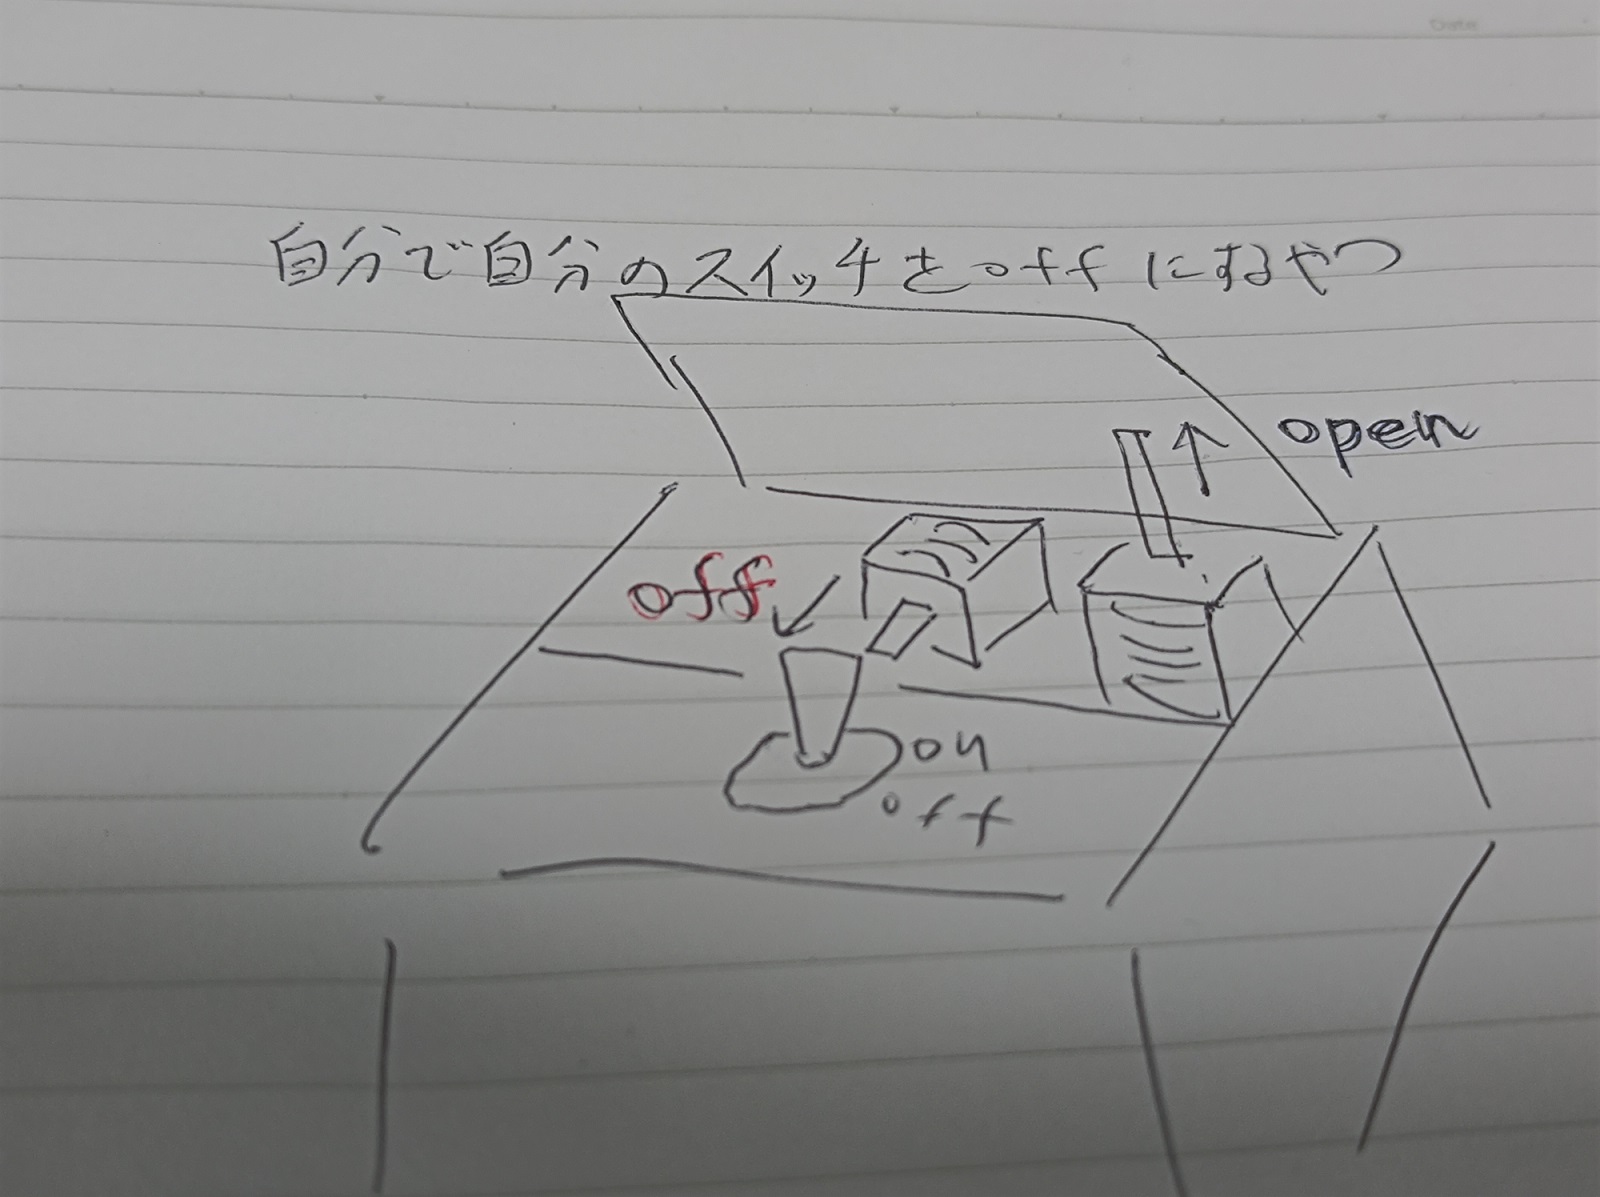 Date
自分で自分のスイッチをoffにするやつ
open
off
on
off